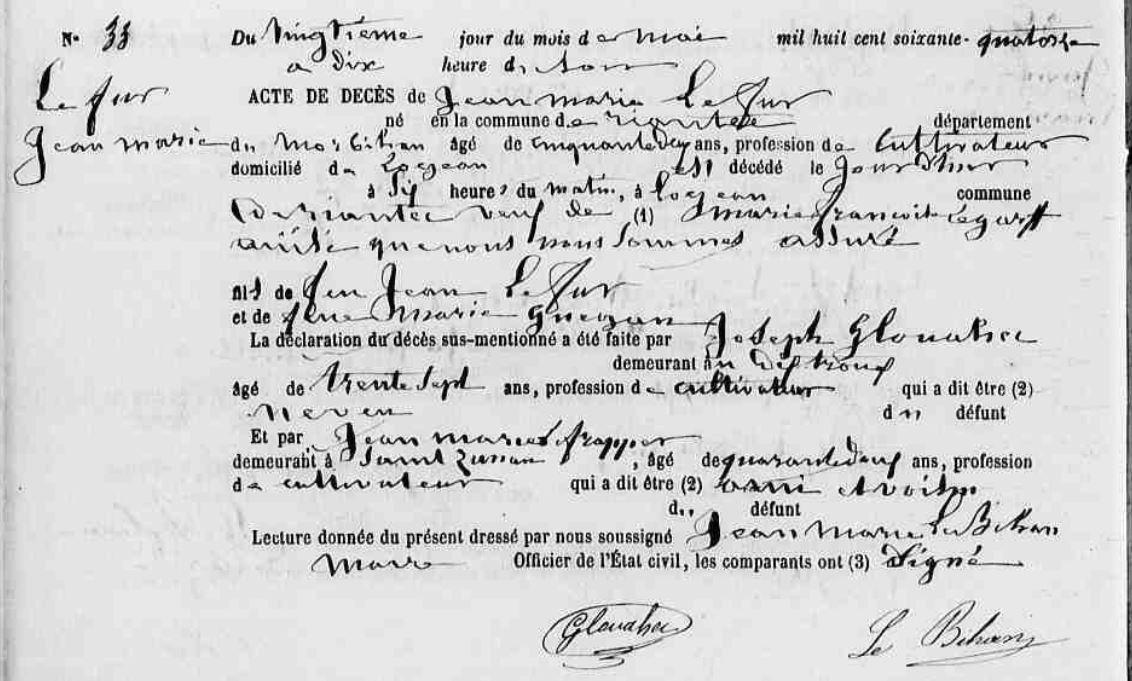 N° 33
Du vingtième jour du mois de mai mil huit cent soixante-quatorze
a dix heure du soir
Le fur
Jean marie
ACTE DE DECÈS de Jean marie Le fur
né en la commune de riantec département
du Morbihan âgé de cinquante deux ans, profession de Cultivateur
domicilié de Locjean est décédé le Jour d'hui
à six heures du matin, à locjean commune
de riantec veuf de (1) marie françoise
que nous nous sommes assuré
fils de feu Jean Le fur
et de feue marie Guegan
La déclaration du décès sus-mentionné a été faite par Joseph Glouahec
demeurant à
âgé de trente sept ans, profession de cultivateur qui a dit être (2)
neveu du défunt
Et par Jean marie Le frapper
demeurant à Saint Zunan, âgé de quarante deux ans, profession
de cultivateur qui a dit être (2) ami et voisin
du défunt
Lecture donnée du présent dressé par nous soussigné Jean Marie Le Bihan
Maire Officier de l'État civil, les comparants ont (3) Signé
Glouahec Le Bihan